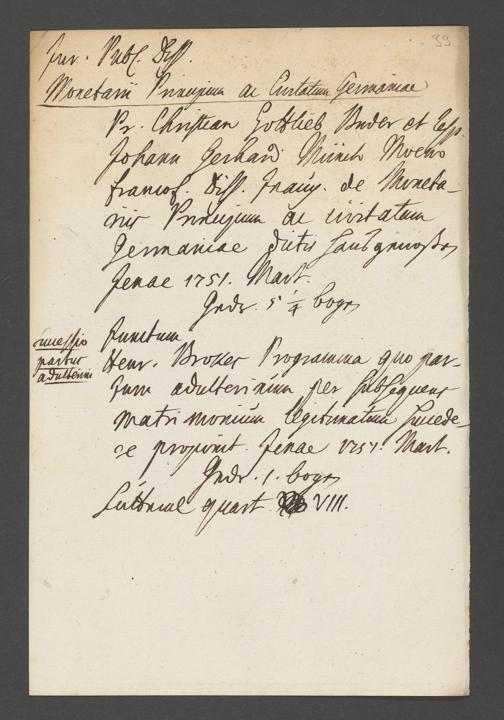 99
Jur. Publ. Diss.
Monetarii Principum ac Civitatum Germaniae
Pr. Christian Gottlieb Buder et Resp.
Johann Gerhard Münch Moeno
francof. Diss. Inaug. de Moneta-
riis Principum ac civitatum
Germaniae dictis Hausgenossen
Jenae 1751. Mart.
5 1/4 bogen
successio
partus
adulterini
Junctum
Henr. Brokes Programma quo par-
tum adulterinum per subsequens
matrimonium legitimatum succede-
re proponit. Jenae 1751. Mart.
1. bogen
quart VIII.